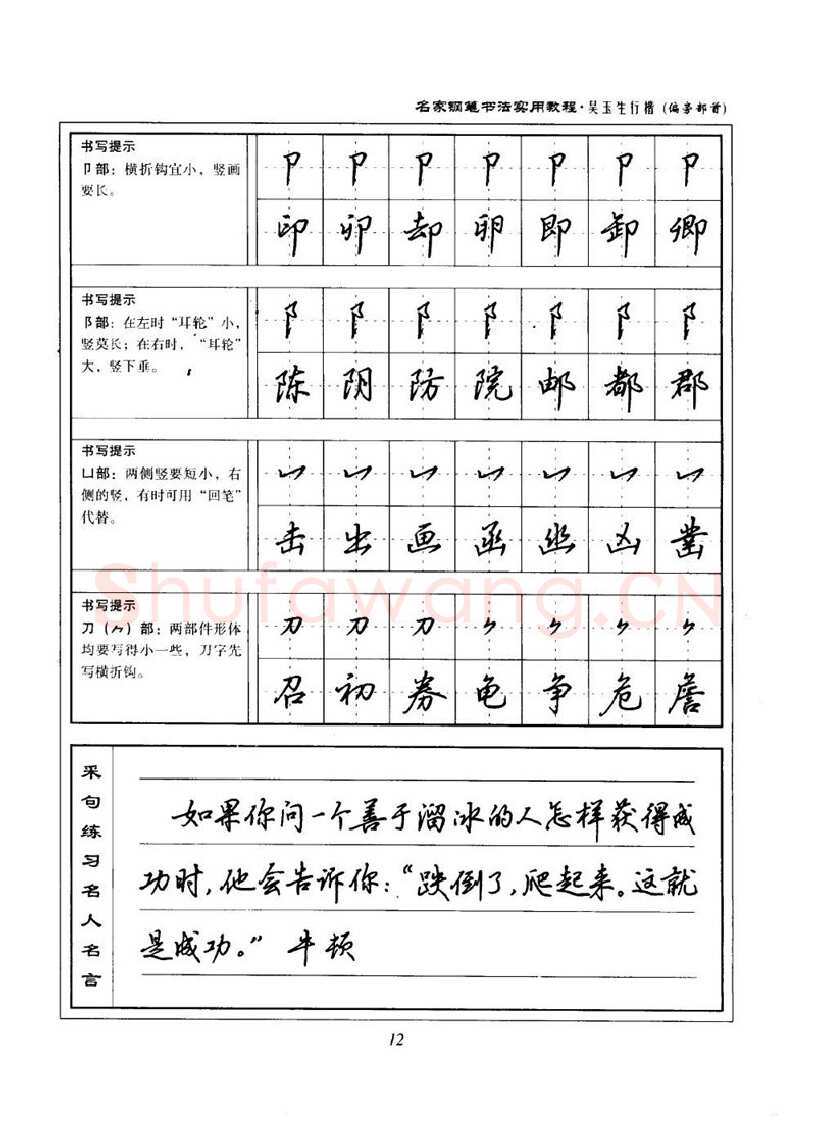 名家钢笔书法实用教程·吴玉生行楷(偏旁部首)
书写提示
卩部:横折钩宜小,竖画
要长。
卩 卩 卩 卩 卩 卩 卩
印 卯 却 卵 即 卸 卿
书写提示
阝部:在左时“耳轮”小,
竖莫长;在右时,“耳轮”
大,竖下垂。
阝 阝 阝 阝 阝 阝 阝
陈 阴 防 院 邮 都 郡
书写提示
凵部:两侧竖要短小,右
侧的竖,有时可用“回笔”
代替。
凵 凵 凵 凵 凵 凵 凵
击 出 画 函 幽 凶 凿
Shufawang.CN
书写提示
刀(⺈)部:两部件形体
均要写得小一些,刀字先
写横折钩。
刀 刀 刀 ⺈ ⺈ ⺈ ⺈
召 初 券 龟 争 危 詹
采句练习名人名言
如果你问一个善于溜冰的人怎样获得成
功时,他会告诉你:“跌倒了,爬起来。这就
是成功。” 牛顿
12